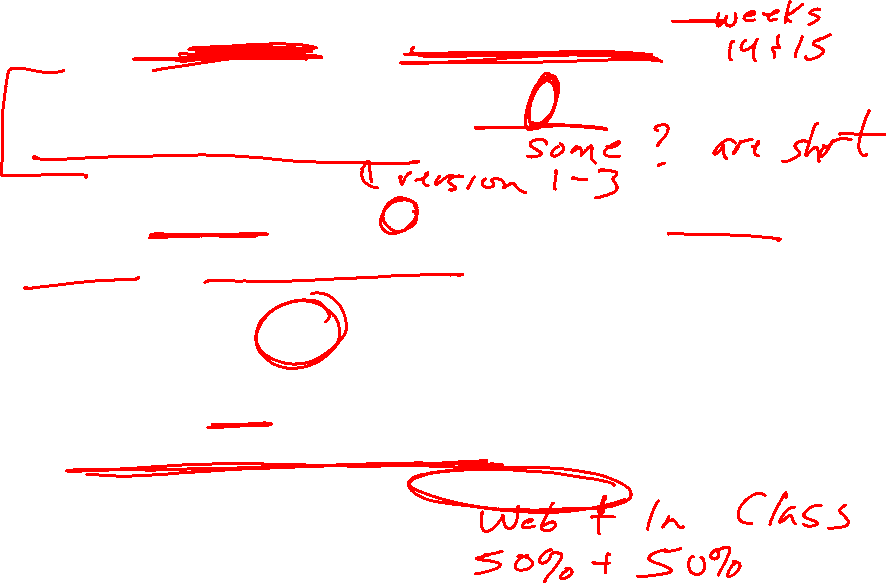 weeks
14 + 15
some ? are short
version 1-3
Web + In Class
50% + 50%